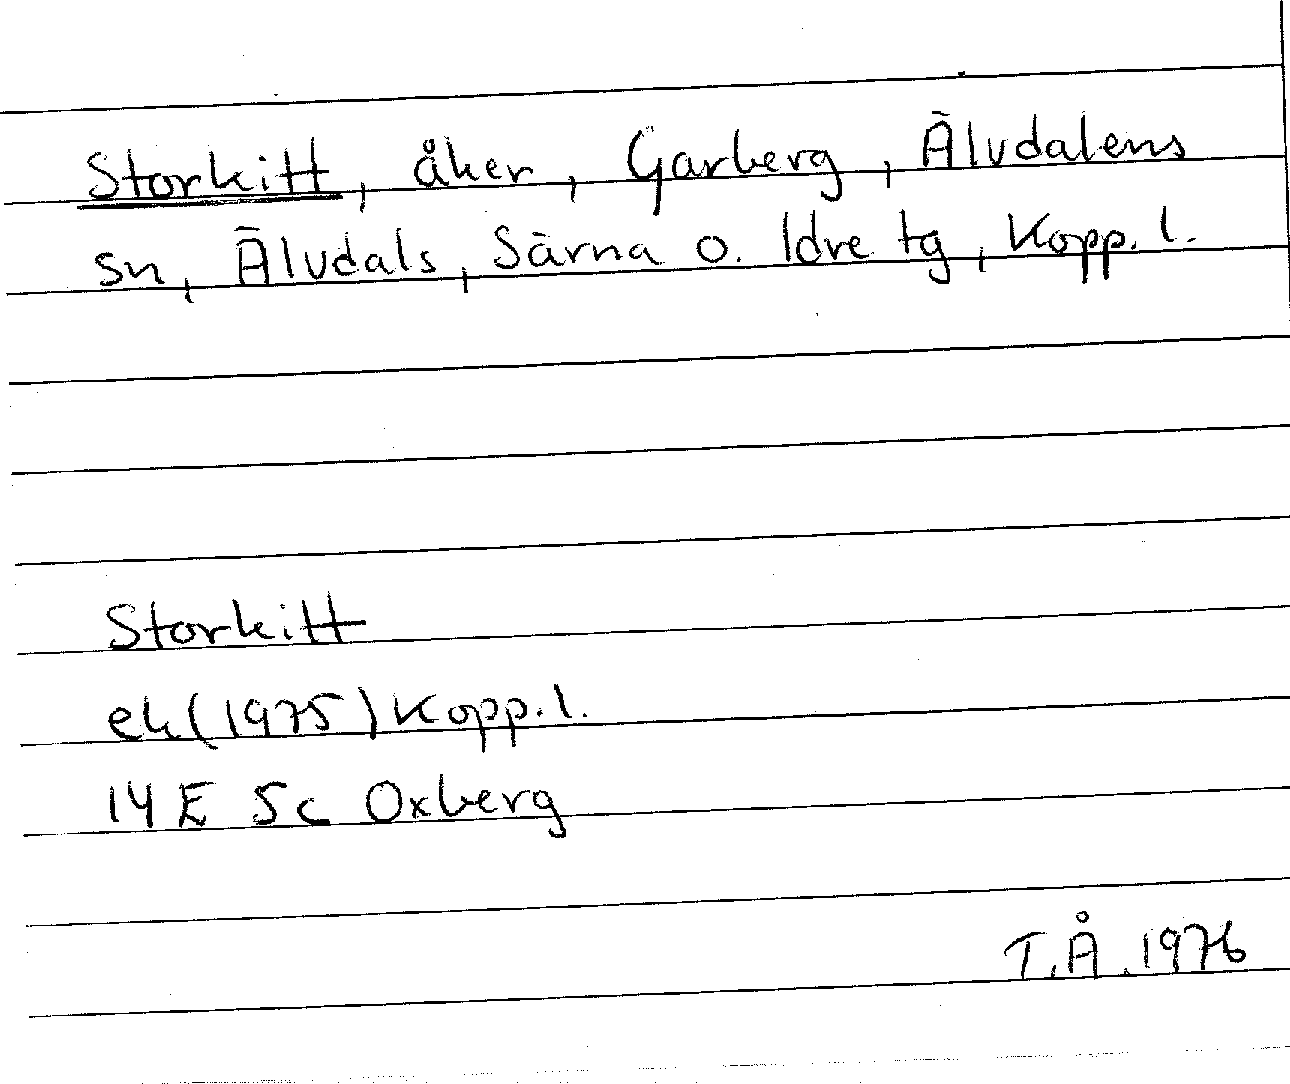 Storkitt, åker, Garberg, Älvdalens
sn, Älvdals, Särna o. Idre tg, Kopp. l.
Storkitt
ek (1975) Kopp. l.
14 E 5c Oxberg
T.Å. 1976